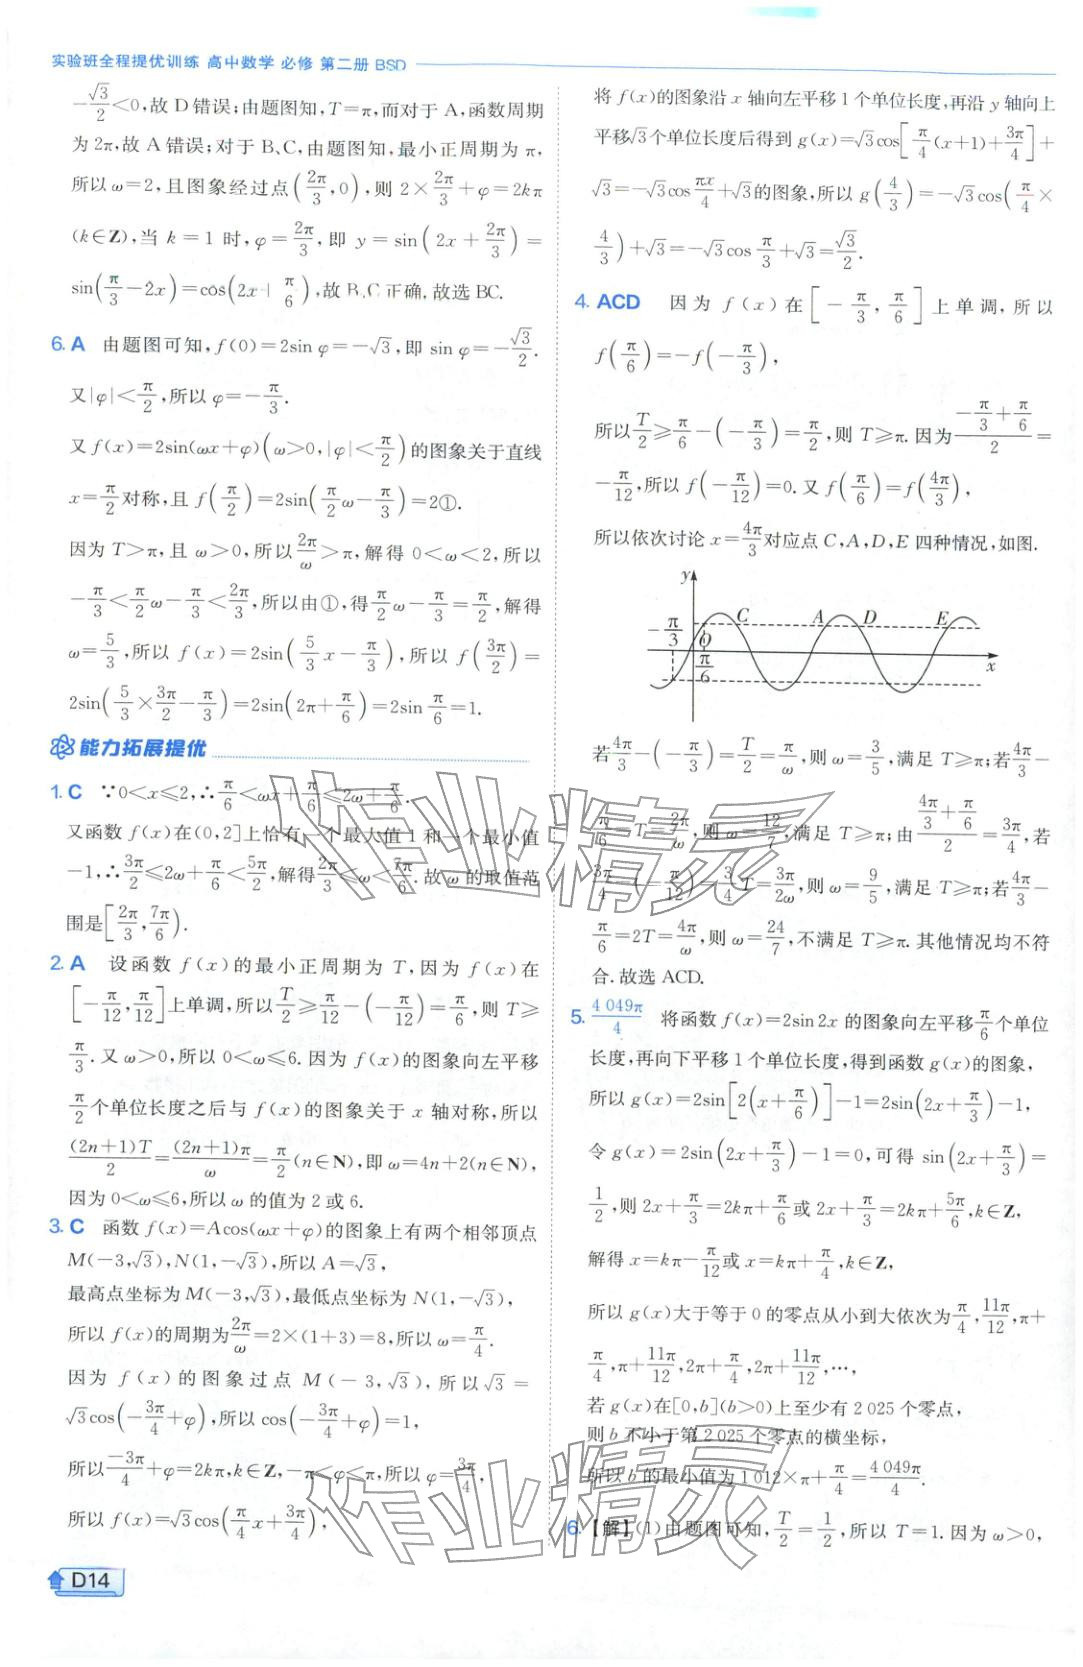 实验班全程提优训练 高中数学 必修 第二册 BSD
-√3/2<0,故 D 错误;由题图知,T=π,而对于 A,函数周期
为 2π,故 A 错误;对于 B、C,由题图知,最小正周期为 π,
所以 ω=2,且图象经过点(2π/3,0),则 2×2π/3+φ=2kπ
(k∈Z),当 k=1 时,φ=2π/3,即 y=sin(2x+2π/3)=
sin(π/3-2x)=cos(2x+π/6),故 B、C 正确,故选 BC.
6. A 由题图可知,f(0)=2sin φ=-√3,即 sin φ=-√3/2.
又|φ|<π/2,所以 φ=-π/3.
又 f(x)=2sin(ωx+φ)(ω>0,|φ|<π/2)的图象关于直线
x=π/2对称,且 f(π/2)=2sin(π/2ω-π/3)=2①.
因为 T>π,且 ω>0,所以2π/ω>π,解得 0<ω<2,所以
-π/3<π/2ω-π/3<2π/3,所以由①,得π/2ω-π/3=π/2,解得
ω=5/3,所以 f(x)=2sin(5/3x-π/3),所以 f(3π/2)=
2sin(5/3×3π/2-π/3)=2sin(2π+π/6)=2sin π/6=1.
能力拓展提优
1. C ∵0<x≤2,∴π/6<ωx+π/6≤2ω+π/6.
又函数 f(x)在(0,2]上恰有一个最大值 1 和一个最小值
-1,∴3π/2≤2ω+π/6<5π/2,解得2π/3≤ω<7π/6,故 ω 的取值范
围是[2π/3,7π/6).
2. A 设函数 f(x)的最小正周期为 T,因为 f(x)在
[-π/12,π/12]上单调,所以T/2≥π/12-(-π/12)=π/6,则 T≥
π/3.又 ω>0,所以 0<ω≤6.因为 f(x)的图象向左平移
π/2个单位长度之后与 f(x)的图象关于 x 轴对称,所以
(2n+1)T/2=(2n+1)π/ω=π/2(n∈N),即 ω=4n+2(n∈N),
因为 0<ω≤6,所以 ω 的值为 2 或 6.
3. C 函数 f(x)=Acos(ωx+φ)的图象上有两个相邻顶点
M(-3,√3),N(1,-√3),所以 A=√3,
最高点坐标为 M(-3,√3),最低点坐标为 N(1,-√3),
所以 f(x)的周期为2π/ω=2×(1+3)=8,所以 ω=π/4.
因为 f(x)的图象过点 M(-3,√3),所以√3=
√3cos(-3π/4+φ),所以 cos(-3π/4+φ)=1,
所以-3π/4+φ=2kπ,k∈Z,-π<φ≤π,所以 φ=3π/4,
所以 f(x)=√3cos(π/4x+3π/4),
D14
将 f(x)的图象沿 x 轴向左平移 1 个单位长度,再沿 y 轴向上
平移√3个单位长度后得到 g(x)=√3cos[π/4(x+1)+3π/4]+
√3=-√3cosπx/4+√3的图象,所以 g(4/3)=-√3cos(π/4×
4/3)+√3=-√3cos π/3+√3=√3/2.
4. ACD 因为 f(x)在[-π/3,π/6]上单调,所以
f(π/6)=-f(-π/3),
所以T/2≥π/6-(-π/3)=π/2,则 T≥π.因为(-π/3+π/6)/2=
-π/12,所以 f(-π/12)=0.又 f(π/6)=f(4π/3),
所以依次讨论 x=4π/3对应点 C,A,D,E 四种情况,如图.
y
C A D E
-π/3 O π/6 x
若4π/3-(-π/3)=T/2=π/ω,则 ω=3/5,满足 T≥π;若4π/3-
π/6=T=2π/ω,则 ω=12/7,满足 T≥π;由(4π/3+π/6)/2=3π/4,若
3π/4-(-π/12)=3/4T=3π/2ω,则 ω=9/5,满足 T≥π;若4π/3-
π/6=2T=4π/ω,则 ω=24/7,不满足 T≥π.其他情况均不符
合.故选 ACD.
5. 4 049π/4 将函数 f(x)=2sin 2x 的图象向左平移π/6个单位
长度,再向下平移 1 个单位长度,得到函数 g(x)的图象,
所以 g(x)=2sin[2(x+π/6)]-1=2sin(2x+π/3)-1,
令 g(x)=2sin(2x+π/3)-1=0,可得 sin(2x+π/3)=
1/2,则 2x+π/3=2kπ+π/6或 2x+π/3=2kπ+5π/6,k∈Z,
解得 x=kπ-π/12或 x=kπ+π/4,k∈Z,
所以 g(x)大于等于 0 的零点从小到大依次为π/4,11π/12,π+
π/4,π+11π/12,2π+π/4,2π+11π/12,…,
若 g(x)在[0,b](b>0)上至少有 2 025 个零点,
则 b 不小于第 2 025 个零点的横坐标,
所以 b 的最小值为 1 012×π+π/4=4 049π/4.
6. 【解】(1)由题图可知,T/2=1/2,所以 T=1.因为 ω>0,
作业精灵
作业精灵